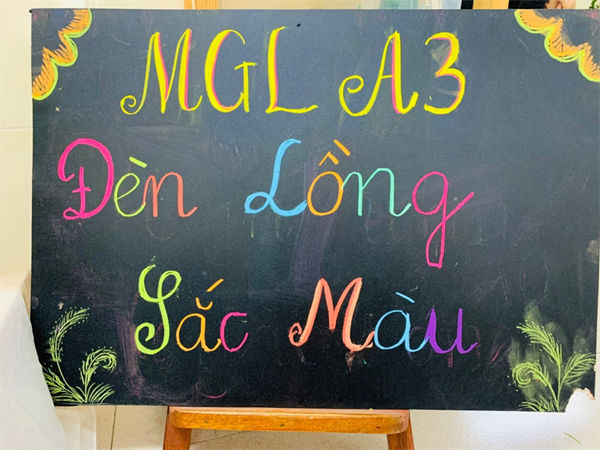 MGL A3
Đèn Lồng
Sắc Màu